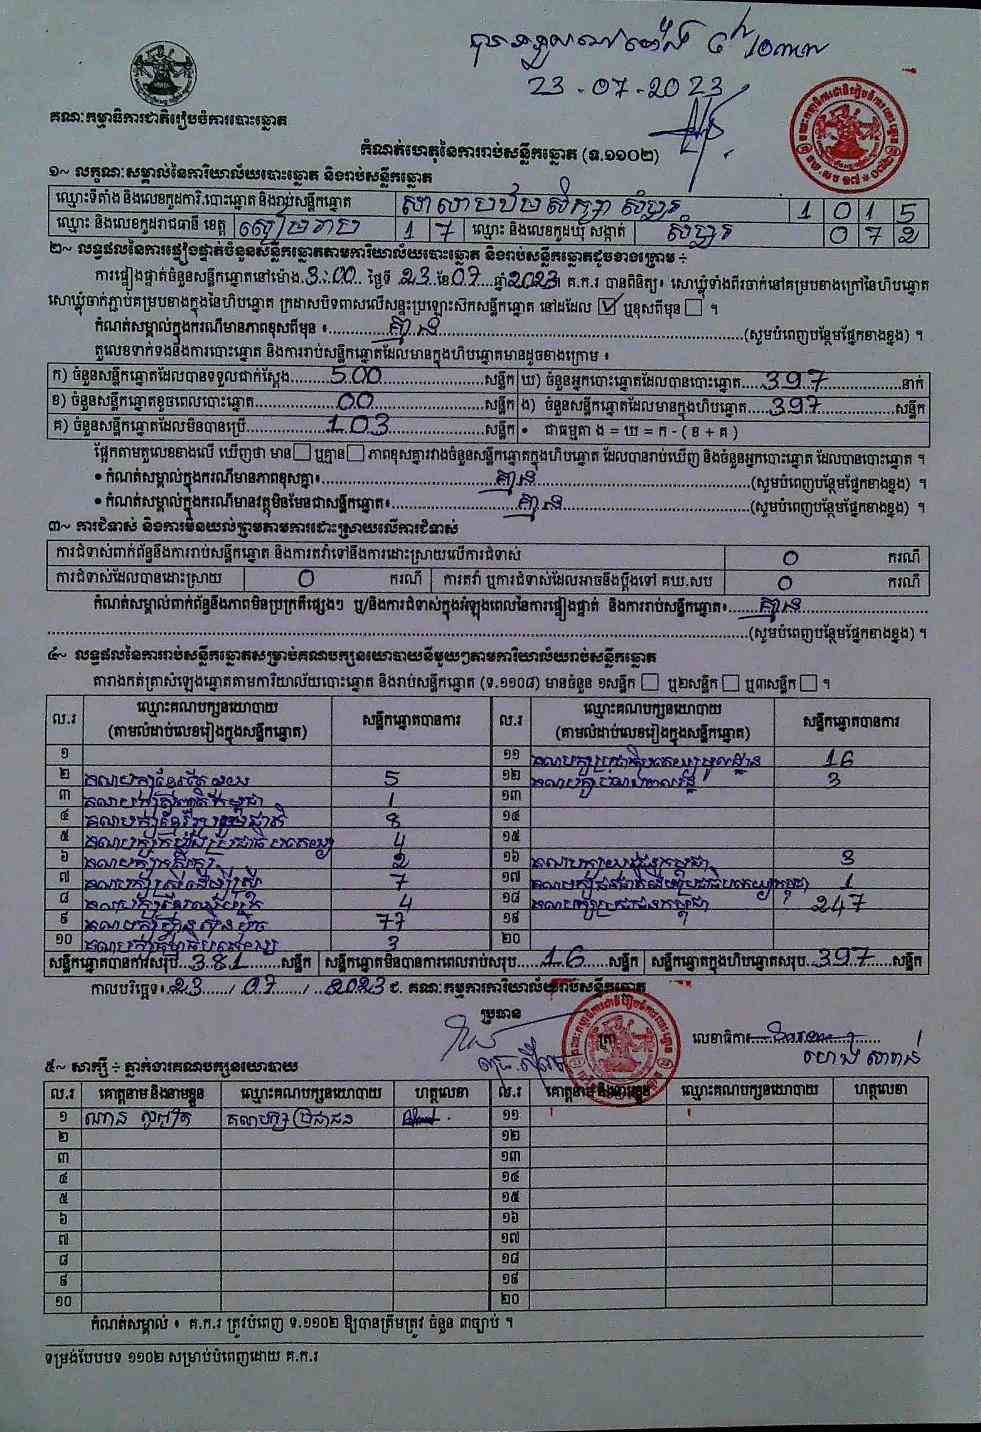 23-07-2023
គណៈកម្មាធិការជាតិរៀបចំការបោះឆ្នោត
កំណត់ហេតុនៃការរាប់សន្លឹកឆ្នោត (ទ.១១០២)
១~ លក្ខណៈសម្គាល់នៃការិយាល័យបោះឆ្នោត និងរាប់សន្លឹកឆ្នោត
ឈ្មោះទីតាំង និងលេខកូដការិ.បោះឆ្នោត និងរាប់សន្លឹកឆ្នោត សាលាបឋមសិក្សា សំបួរ 1 0 1 5
ឈ្មោះ និងលេខកូដរាជធានី ខេត្ត សៀមរាប 1 7 ឈ្មោះ និងលេខកូដឃុំ សង្កាត់ សំបួរ 0 7 2
២~ លទ្ធផលនៃការផ្ទៀងផ្ទាត់ចំនួនសន្លឹកឆ្នោតតាមការិយាល័យបោះឆ្នោត និងរាប់សន្លឹកឆ្នោតដូចខាងក្រោម ៖
ការផ្ទៀងផ្ទាត់ចំនួនសន្លឹកឆ្នោតនៅម៉ោង 3:00 ថ្ងៃទី 23 ខែ 07 ឆ្នាំ 2023។ គ.ក.រ បានពិនិត្យ៖ សោឃ្លុំទាំងពីរចាក់នៅគម្របខាងក្រៅនៃហិបឆ្នោត
សោឃ្លុំចាក់ភ្ជាប់គម្របខាងក្នុងនៃហិបឆ្នោត ក្រដាសបិទពាសលើសន្ទះប្រឡោះស៊កសន្លឹកឆ្នោត នៅដដែល ☑ ឬខុសពីមុន ☐ ។
កំណត់សម្គាល់ក្នុងករណីមានភាពខុសពីមុន ៖ គ្មាន (សូមបំពេញបន្ថែមផ្នែកខាងខ្នង) ។
តួលេខទាក់ទងនឹងការបោះឆ្នោត និងការរាប់សន្លឹកឆ្នោតដែលមានក្នុងហិបឆ្នោតមានដូចខាងក្រោម ៖
ក) ចំនួនសន្លឹកឆ្នោតដែលបានទទួលជាក់ស្តែង 500 សន្លឹក ឃ) ចំនួនអ្នកបោះឆ្នោតដែលបានបោះឆ្នោត 397 នាក់
ខ) ចំនួនសន្លឹកឆ្នោតខូចពេលបោះឆ្នោត 00 សន្លឹក ង) ចំនួនសន្លឹកឆ្នោតដែលមានក្នុងហិបឆ្នោត 397 សន្លឹក
គ) ចំនួនសន្លឹកឆ្នោតដែលមិនបានប្រើ 103 សន្លឹក • ជាធម្មតា ង = ឃ = ក - ( ខ + គ )
ផ្អែកតាមតួលេខខាងលើ ឃើញថា មាន ☐ ឬគ្មាន ☐ ភាពខុសគ្នារវាងចំនួនសន្លឹកឆ្នោតក្នុងហិបឆ្នោត ដែលបានរាប់ឃើញ និងចំនួនអ្នកបោះឆ្នោត ដែលបានបោះឆ្នោត ។
• កំណត់សម្គាល់ក្នុងករណីមានភាពខុសគ្នា៖ គ្មាន (សូមបំពេញបន្ថែមផ្នែកខាងខ្នង) ។
• កំណត់សម្គាល់ក្នុងករណីមានវត្ថុមិនមែនជាសន្លឹកឆ្នោត៖ គ្មាន (សូមបំពេញបន្ថែមផ្នែកខាងខ្នង) ។
៣~ ការជំទាស់ និងការមិនយល់ព្រមតាមការដោះស្រាយលើការជំទាស់
ការជំទាស់ពាក់ព័ន្ធនឹងការរាប់សន្លឹកឆ្នោត និងការតវ៉ាទៅនឹងការដោះស្រាយលើការជំទាស់ 0 ករណី
ការជំទាស់ដែលបានដោះស្រាយ 0 ករណី ការតវ៉ា ឬការជំទាស់ដែលអាចនឹងប្តឹងទៅ គឃ.សប 0 ករណី
កំណត់សម្គាល់ពាក់ព័ន្ធនឹងភាពមិនប្រក្រតីផ្សេងៗ ឬ/និងការជំទាស់ក្នុងអំឡុងពេលនៃការផ្ទៀងផ្ទាត់ និងការរាប់សន្លឹកឆ្នោត៖ គ្មាន
(សូមបំពេញបន្ថែមផ្នែកខាងខ្នង) ។
៤~ លទ្ធផលនៃការរាប់សន្លឹកឆ្នោតសម្រាប់គណបក្សនយោបាយនីមួយៗតាមការិយាល័យរាប់សន្លឹកឆ្នោត
តារាងកត់ត្រាសំឡេងឆ្នោតតាមការិយាល័យបោះឆ្នោត និងរាប់សន្លឹកឆ្នោត (ទ.១១០៨) មានចំនួន ១សន្លឹក ☐ ឬ២សន្លឹក ☐ ឬ៣សន្លឹក ☐ ។
ល.រ ឈ្មោះគណបក្សនយោបាយ (តាមលំដាប់លេខរៀងក្នុងសន្លឹកឆ្នោត) សន្លឹកឆ្នោតបានការ ល.រ ឈ្មោះគណបក្សនយោបាយ (តាមលំដាប់លេខរៀងក្នុងសន្លឹកឆ្នោត) សន្លឹកឆ្នោតបានការ
១ ១១ គណបក្សប្រជាធិបតេយ្យមូលដ្ឋាន 16
២ គណបក្សខ្មែរតែមួយ 5 ១២ 3
៣ 1 ១៣
៤ គណបក្សខ្មែររួបរួមជាតិ 8 ១៤
៥ 4 ១៥
៦ គណបក្សកសិករ 2 ១៦ គណបក្សយុវជនកម្ពុជា 3
៧ គណបក្សស្ត្រីដើម្បីស្ត្រី 7 ១៧ 1
៨ 4 ១៨ គណបក្សប្រជាជនកម្ពុជា 247
៩ គណបក្សហ្វ៊ុនស៊ិនប៉ិច 77 ១៩
១០ គណបក្សធម្មាធិបតេយ្យ 3 ២០
សន្លឹកឆ្នោតបានការសរុប 381 សន្លឹក សន្លឹកឆ្នោតមិនបានការពេលរាប់សរុប 16 សន្លឹក សន្លឹកឆ្នោតក្នុងហិបឆ្នោតសរុប 397 សន្លឹក
កាលបរិច្ឆេទ៖ 23 / 07 / 2023 គណៈកម្មការការិយាល័យរាប់សន្លឹកឆ្នោត
ប្រធាន
លេខាធិការ
៥~ សាក្សី ÷ ភ្នាក់ងារគណបក្សនយោបាយ
ល.រ គោត្តនាម និងនាមខ្លួន ឈ្មោះគណបក្សនយោបាយ ហត្ថលេខា ល.រ គោត្តនាម និងនាមខ្លួន ឈ្មោះគណបក្សនយោបាយ ហត្ថលេខា
១ គណបក្សប្រជាជន ១១
២ ១២
៣ ១៣
៤ ១៤
៥ ១៥
៦ ១៦
៧ ១៧
៨ ១៨
៩ ១៩
១០ ២០
កំណត់សម្គាល់ ៖ គ.ក.រ ត្រូវបំពេញ ទ.១១០២ ឱ្យបានត្រឹមត្រូវ ចំនួន ៣ច្បាប់ ។
ទម្រង់បែបបទ ១១០២ សម្រាប់បំពេញដោយ គ.ក.រ